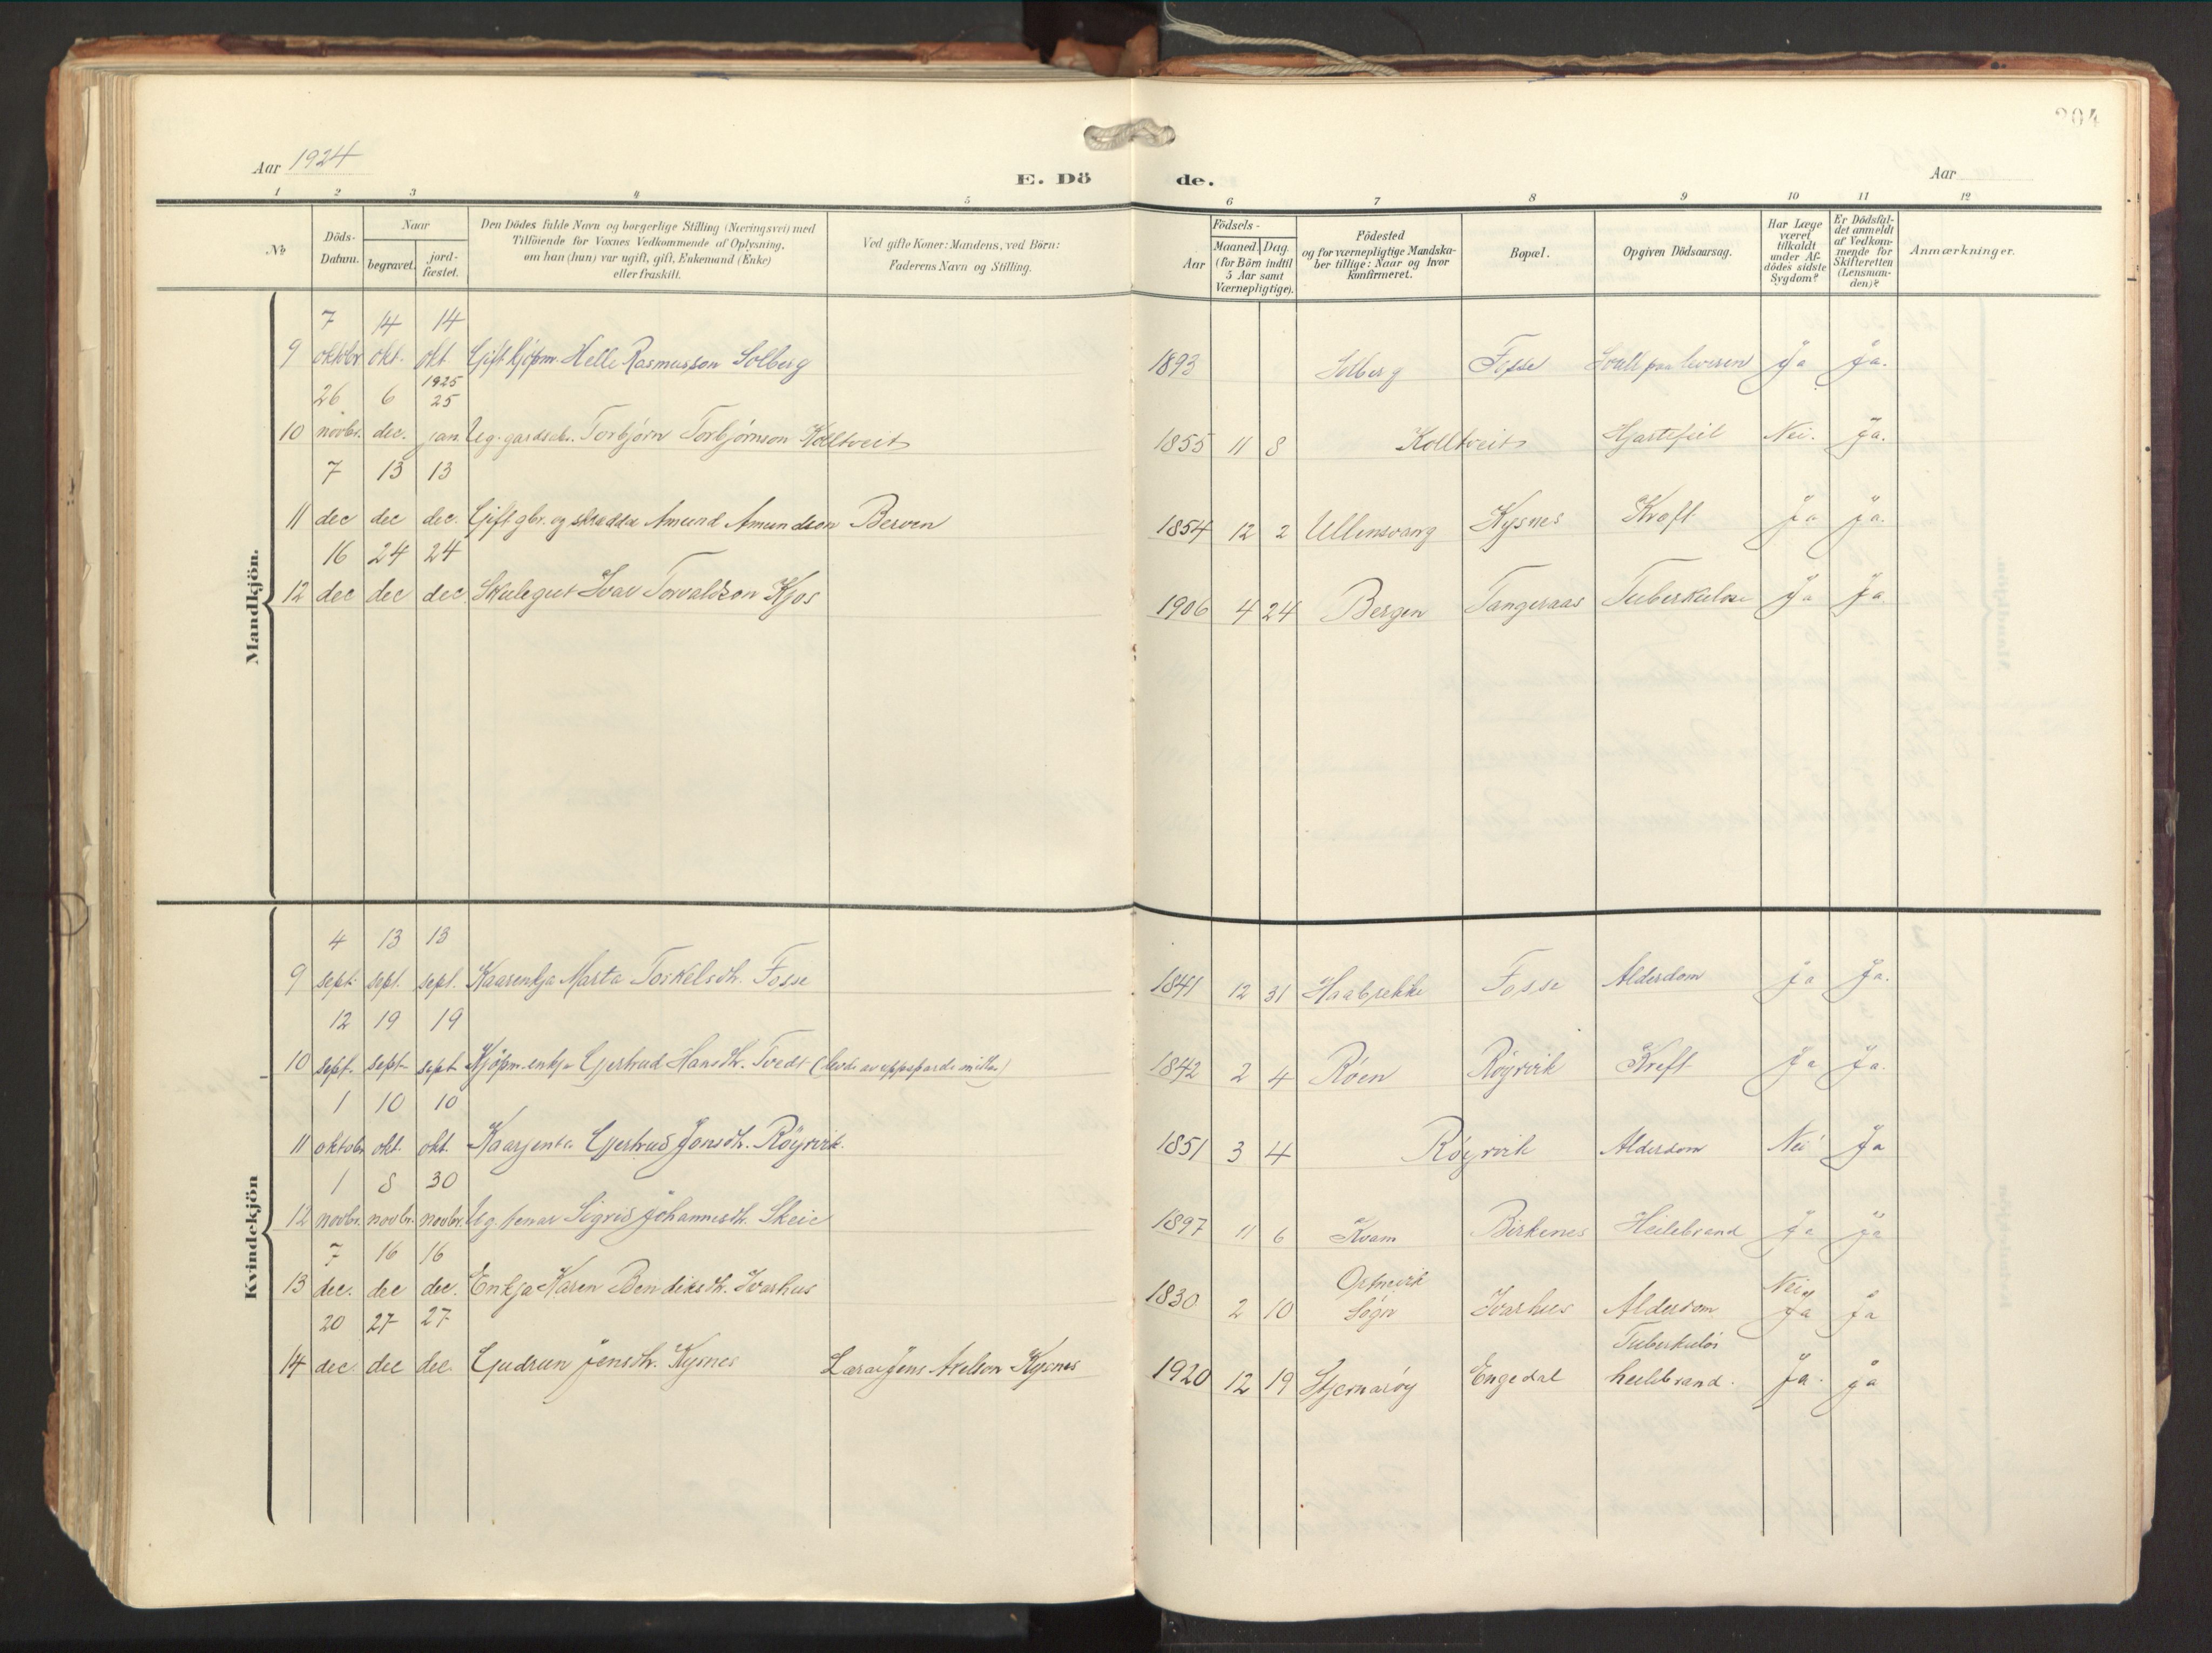 204
Aar 1924
E. Dö de.
Aar
1 2 3 4 5 6 7 8 9 10 11 12
No
Döds-Datum.
Naar
begravet.
jord-fæstet.
Den Dödes fulde Navn og borgerlige Stilling (Næringsvei) med
Tilföiende for Voxnes Vedkommende af Oplysning,
om han (hun) var ugift, gift, Enkemand (Enke)
eller fraskilt.
Ved gifte Koner: Mandens, ved Börn:
Faderens Navn og Stilling.
Födsels-
Aar
Maaned. Dag.
(for Börn indtil
5 Aar samt
Værnepligtige).
Födested
og for værnepligtige Mandska-
ber tillige: Naar og hvor
konfirmeret.
Bopæl.
Opgiven Dödsaarsag.
Har Læge
været
tilkaldt
under Af-
dödes sidste
Sygdom?
Er Dödsfal-
det anmeldt
af Vedkom-
mende for
Skifteretten
(Lensman-
den)?
Anmærkninger.
Mandkjön.
7 14 14
9 oktobr okt. okt. Gift kjöpm. Helle Rasmusson Solberg 1893 Solberg Fosse Svull paa leveren Ja Ja.
26 6 1925 25
10 novbr. dec. jan. Ug. gardsarb. Torbjørn Torbjørnson Kolltveit 1855 11 8 Kolltveit Hjartefeil Nei. Ja.
7 13 13
11 dec dec dec. Gift gbr. og skrædder Amund Amundson Berven 1854 12 2 Ullensvang Kysnes Kræft Ja Ja.
16 24 24
12 dec dec dec Skulegut Ivar Torvaldson Kjos 1906 4 24 Bergen Tangeraas Tuberkulose Ja Ja
Kvindekjön
4 13 13
9 sept. sept. sept. Kaarenkja Marta Toskelsdtr. Fosse 1841 12 31 Haabrekke Fosse Alderdom Ja Ja.
12 19 19
10 sept. sept. sept. Kjöpm. enkja Gjertrud Hansdtr. Tvedt (levde av uppsparde midlar) 1842 2 4 Røen Røyrvik Kreft Ja Ja.
1 10 10
11 oktobr okt. okt. Kaarjenta Gjertrud Jonsdtr. Røyrvik. 1851 3 4 Røyrvik Alderdom Nei Ja
1 8 30
12 novbr. novbr. novbr. Ug. tenar Sigrid Johannesdtr. Skeie 1897 11 6 Kvam Birkenes Heilebrand Ja Ja
7 16 16
13 dec. dec dec. Enkja Karen Bendiksdtr. Ivarhus 1830 2 10 Ortnevik Sogn Ivarhus Alderdom Nei Ja Ja
20 27 27
14 dec. dec dec. Gudrun Jensdtr. Kysnes Lærar Jens Axelson Kysnes 1920 12 19 Stjernarøy Engedal Tuberkuløs heilebrand. Ja. Ja